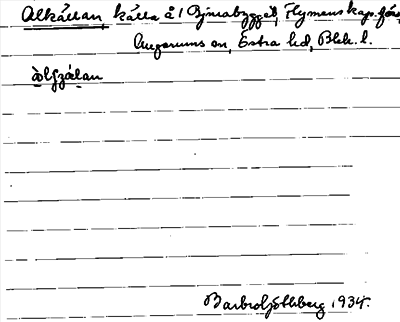 Alkällan, källa å 1 Björnabygget, Flymens kap.förs.
Augerums sn, Östra hd, Blek. l.
àlɟzálan
Barbro Jöthberg 1934.